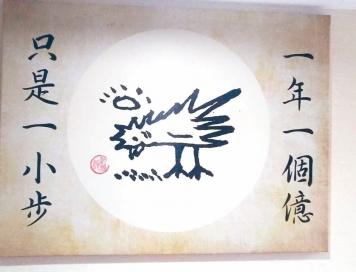 一年一個億
只是一小步